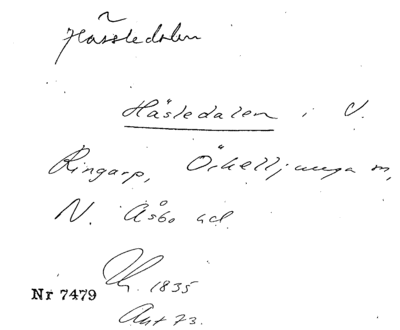 Hässledalen
Häsledalen i V.
Ringarp, Örkelljunga sn,
N. Åsbo hd.
1835
Nr 7479
Ant 73.